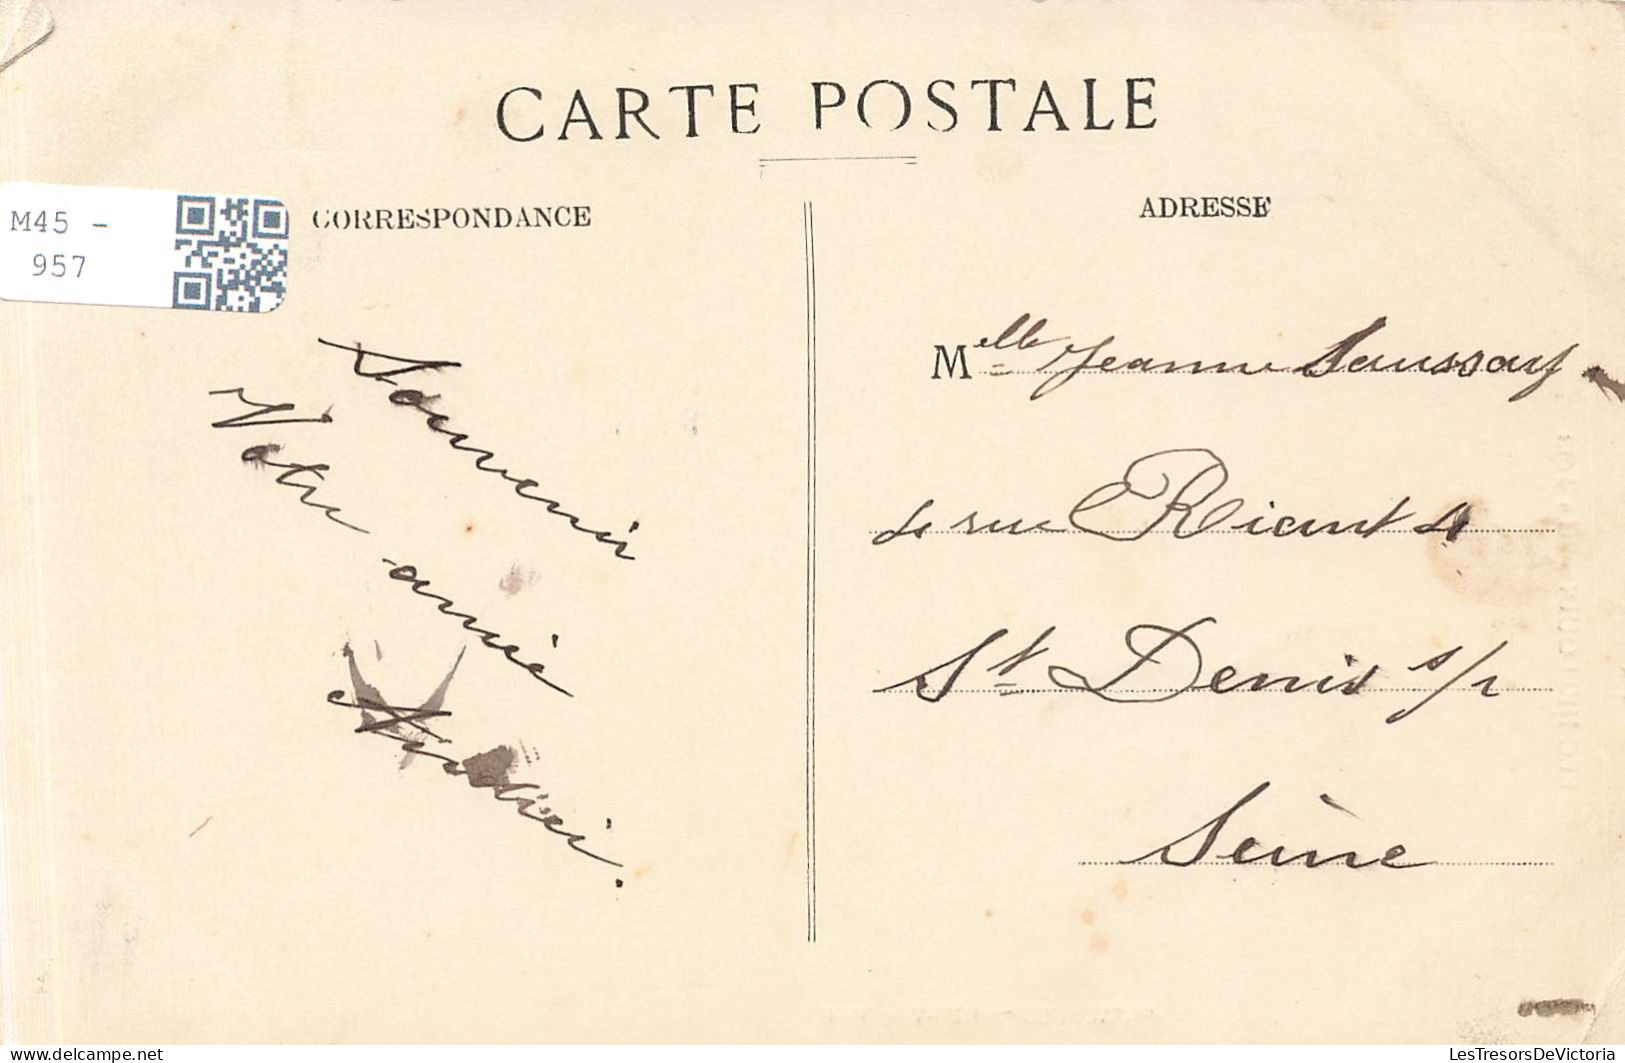 CARTE POSTALE
M45 -
957
CORRESPONDANCE
Souvenir
Votre amie
ADRESSE
Melle Jeanne Saussay.
4 rue Riant 4
St Denis s/
Seine
delcampe.net
LesTresorsDeVictoria